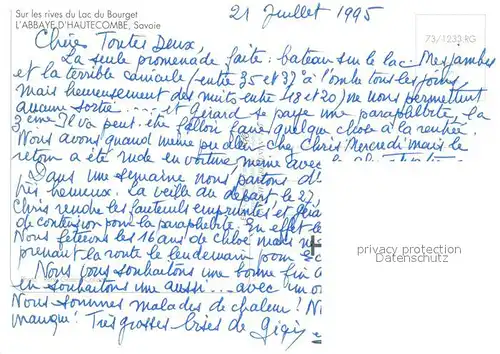 Sur les rives du Lac du Bourget
L'ABBAYE D'HAUTECOMBE, Savoie
21 Juillet 1995
73/1233.RG
Chères Toutes Deux,
La seule promenade faite : bateau sur le lac. Mes jambes
et la terrible canicule (entre 35 et 37° à l'ombre tous les jours,
mais heureusement des nuits entre 18 et 20) ne nous permettent
aucune sortie .... et Gérard se paye une paraphlébite, la
3ème. Il va peut-être falloir faire quelque chose à la rentrée.
Nous avons quand même pu aller chez Chris Mercredi mais le
retour a été rude en voiture, même avec
Dans une semaine nous partons
très heureux. La veille du départ, le 27,
Chris rendre les fauteuils empruntés et
de contention pour la paraphlébite. En effet le
Nous fêterons les 16 ans de Chloé mais
prenant la route le lendemain pour
Nous vous souhaitons une bonne fin
en souhaitons une aussi ... avec un
Nous sommes malades de chaleur !
manque ! Très grosses bises de Gigi
privacy protection
Datenschutz